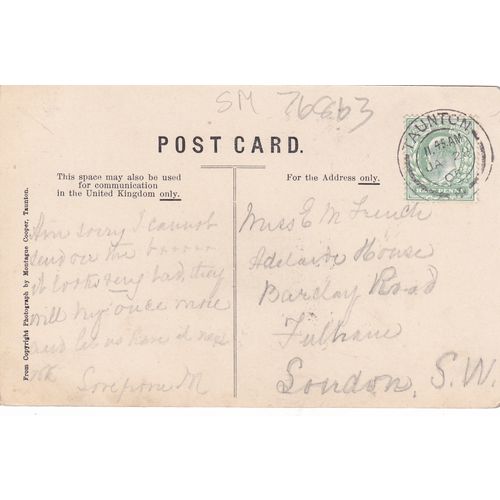 SM 76863
POST CARD.
This space may also be used
for communication
in the United Kingdom only.
For the Address only.
TAUNTON
11.45 AM
JA 2
HALF PENNY
From Copyright Photograph by Montague Cooper, Taunton.
Am sorry I cannot
send on the
it looks very bad, they
will try once more
and let us have it next
wk
Love from M
Miss E M French
Adelaide House
Barclay Road
Fulham
London, S.W.